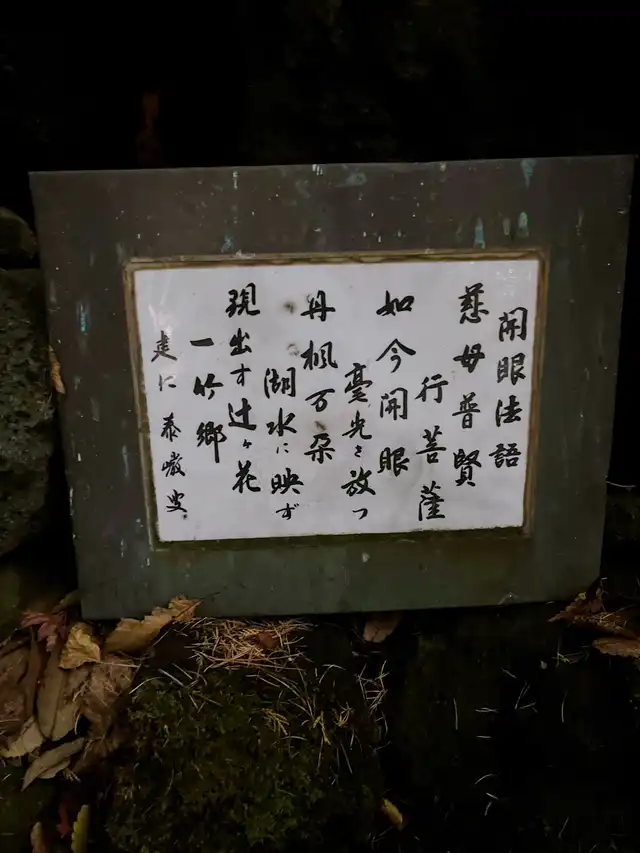 開眼法語
慈母普賢
行菩薩
如今開眼
毫光を放つ
丹楓万朶
湖水に映ず
現出す辻ヶ花
一竹郷
建仁 泰巌叟